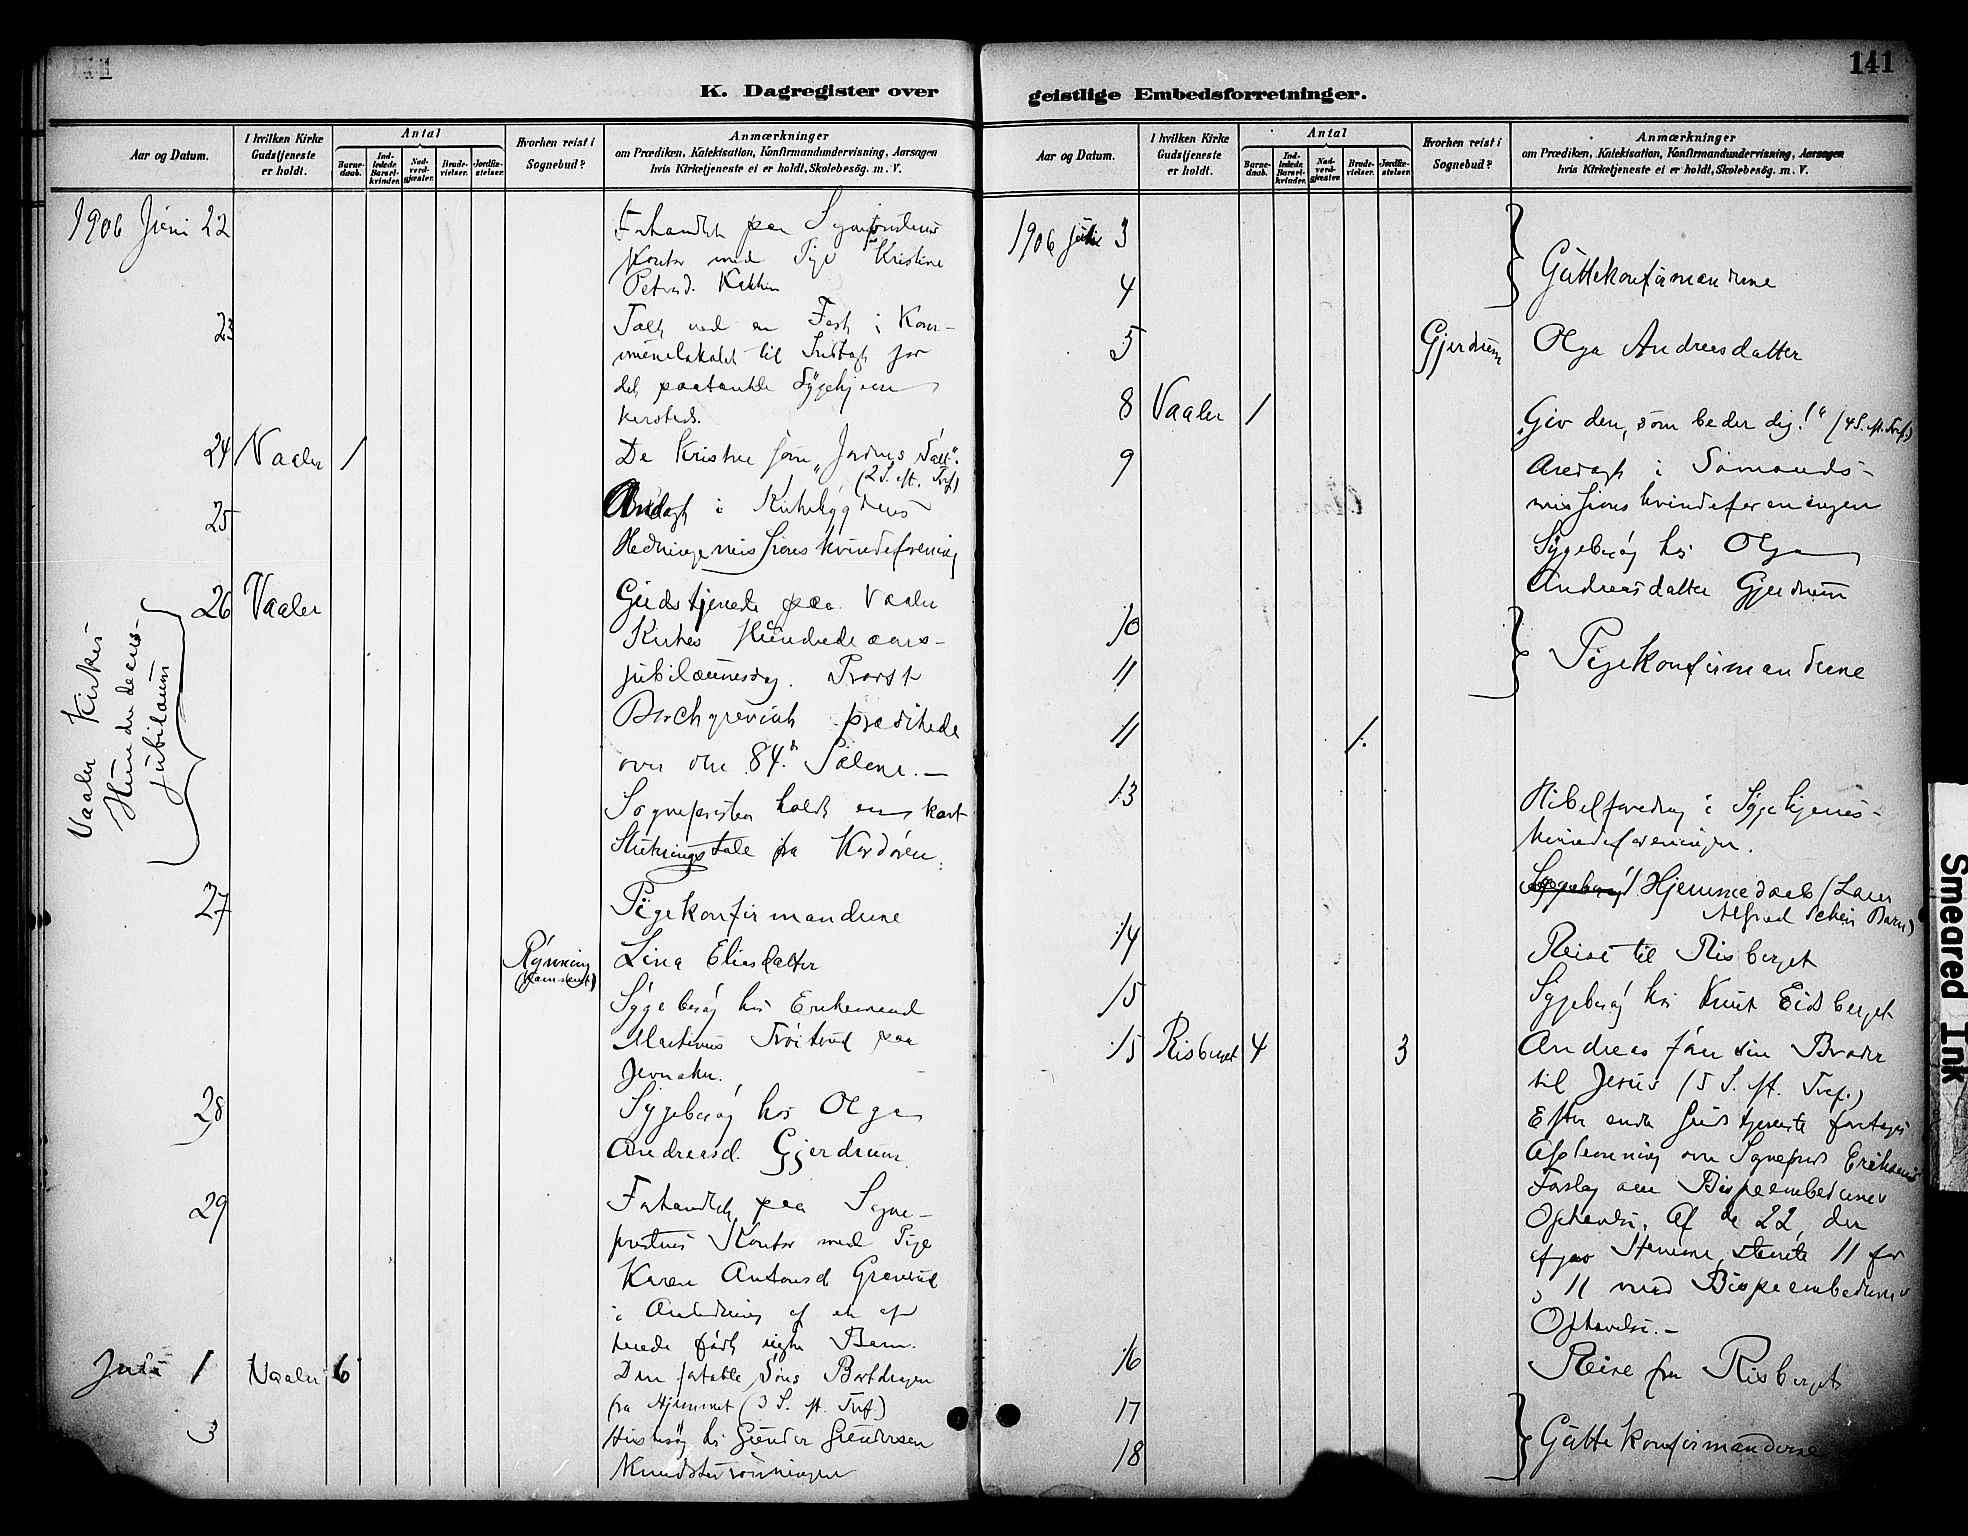 141
K. Dagregister over geistlige Embedsforretninger.
Aar og Datum.
I hvilken Kirke Gudstjeneste er holdt.
Antal
Barnedaab.
Indledede Barselkvinder.
Nadverdgjæster.
Brudevielser.
Jordfæstelser.
Hvorhen reist i Sognebud?
Anmærkninger
om Prædiken, Katekisation, Konfirmandundervisning, Aarsagen
hvis Kirketjeneste ei er holdt, Skolebesøg. m. V.
1906 Juni 22
Forhandlet paa Sogneprestens
Kontor med Pige Kristine
Petersd.
23 Talt ved en Fest i Kom-
munelokalet til Indtægt for
det paatænkte Sygehjem
24 Vaaler 1 De Kristne som "Jordens Salt".
(2 S. eft. Tref.)
25 Andagt i Kirkebygdens
Hedningemissions kvindeforening
26 Vaaler Gudstjeneste paa Vaaler
Kirkes Hundredeaars-
jubilæumsdag. Provst
Borchgrevink prædikede
over den 84de Salme. —
Sognepresten holdt en kort
Slutningstale fra Kordøren.
Vaaler Kirkes
Hundredeaars-
jubilæum
27 Pigekonfirmanderne
Rønning Lina Eliasdatter
Sygebesøg hos Enkemand
Martinus Trøitrud paa
Jernaker.
28 Sygebesøg hos Olga
Andreasd. Gjerdrum.
29 Forhandlet paa Sogne-
prestens Kontor med Pige
Karen Antonsd Grønrud
i Anledning af et af
hende født uægte Barn.
Juli 1 Vaaler 6 Den fortabte Søns Bortdragen
fra Hjemmet (3 S. eft. Tref.)
3 Husbesøg hos Gunder Gundersen
Knudstusrønningen
Aar og Datum.
I hvilken Kirke Gudstjeneste er holdt.
Antal
Barnedaab.
Indledede Barselkvinder.
Nadverdgjæster.
Brudevielser.
Jordfæstelser.
Hvorhen reist i Sognebud?
Anmærkninger
om Prædiken, Katekisation, Konfirmandundervisning, Aarsagen
hvis Kirketjeneste ei er holdt, Skolebesøg. m. V.
1906 Juli 3
4 Guttekonfirmanderne
5 Gjerdrum Olga Andreasdatter
8 Vaaler 1 "Giv den, som beder dig!" (4 S. eft. Tref.)
9 Andagt i Sømands-
missions kvindeforeningen
Sygebesøg hos Olga
Andreasdatter Gjerdrum
10
11 Pigekonfirmanderne
11 1
13 Bibelforedrag i Sygehjems-
kvindeforeningen.
Sygebesøg Hjemmedaab (Lars
Alfred Barn)
14 Reise til Risberget
15 Sygebesøg hos Knut Eidsberget
15 Risberget 4 3 Andreas fører sin Broder
til Jesus (5 S. eft. Tref.)
Efter endt Gudstjeneste foretoges
Afstemning over Sogneprest Eriksens
Forslag om Bispeembedernes
Ophævelse. Af de 22, der
afgav Stemme, stemte 11 for
og 11 mod Bispeembedernes
Ophævelse. —
16 Reise fra Risberget
17
18 Guttekonfirmanderne
Smeared Ink